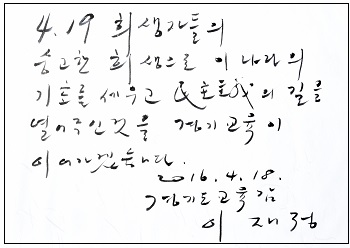 4.19 희생자들의
숭고한 희생으로 이 나라의
기초를 세우고 民主主義의 길을
열어주인것을 경기교육이
이어가겠습니다.
2016.4.18.
경기도교육감
이재정